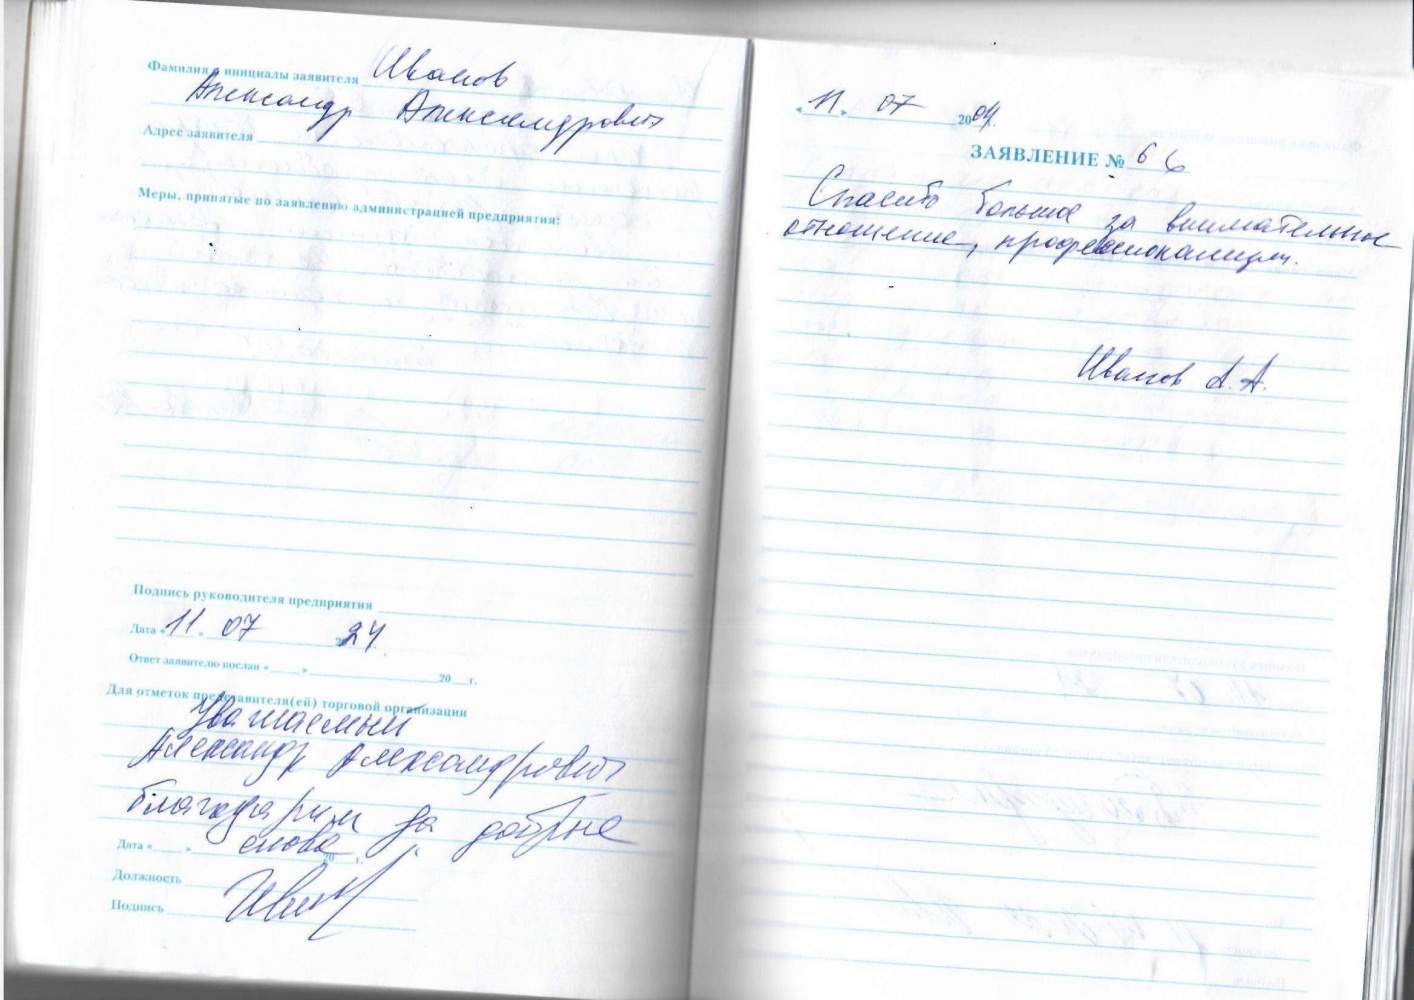 Фамилия и инициалы заявителя Иванов
Александр Александрович
Адрес заявителя
Меры, принятые по заявлению администрацией предприятия:
Подпись руководителя предприятия
Дата « 11 » 07 24.
Ответ заявителю послан « » 20 г.
Для отметок представителя(ей) торговой организации
Уважаемый
Александр Александрович
благодарим за добрые
слова
Дата « » 20 г.
Должность
Подпись
« 11 » 07 2004.
ЗАЯВЛЕНИЕ № 66
Спасибо большое за внимательное
отношение, профессионализм.
Иванов А.А.